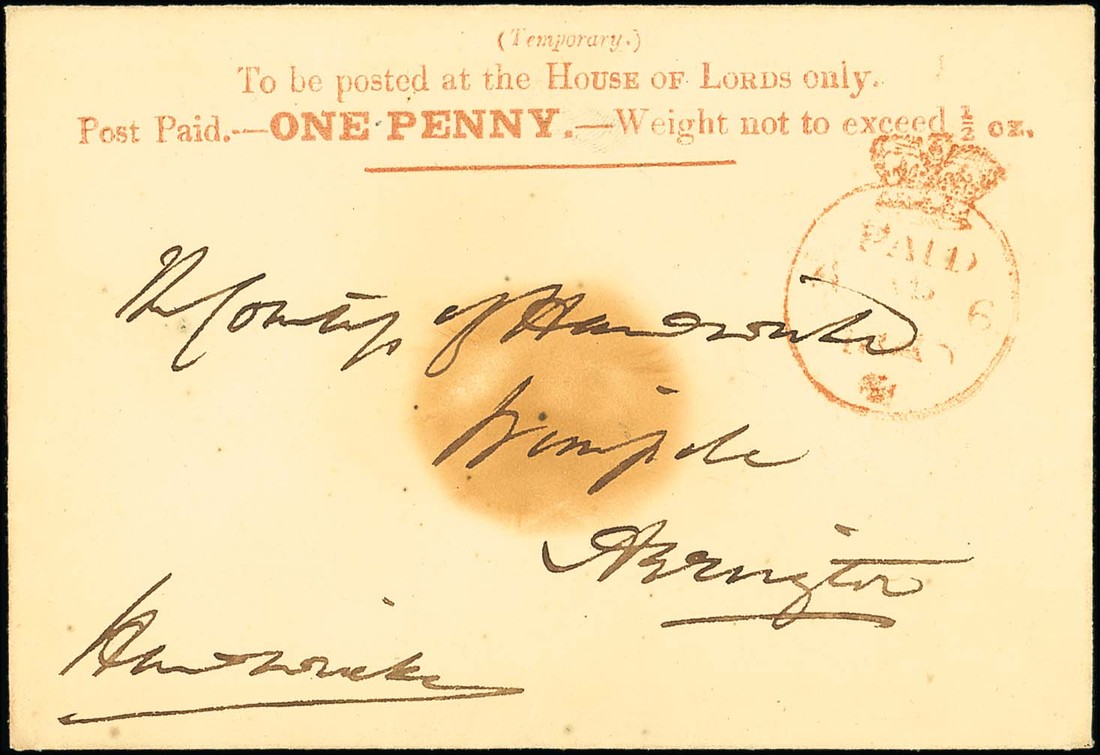 (Temporary.)
To be posted at the HOUSE OF LORDS only.
Post Paid.—ONE PENNY.—Weight not to exceed ½ oz.
PAID
6
The Countess of Hardwicke
Wimpole
Arrington
Hardwicke